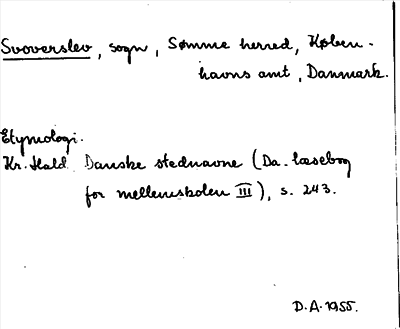 Svoverslev, sogn, Sømme herred, Køben-
havns amt, Danmark.
Etymologi.
Kr. Hald Danske stednavne (Da. læsebog
for mellemskolen III), s. 243.
D.A. 1955.